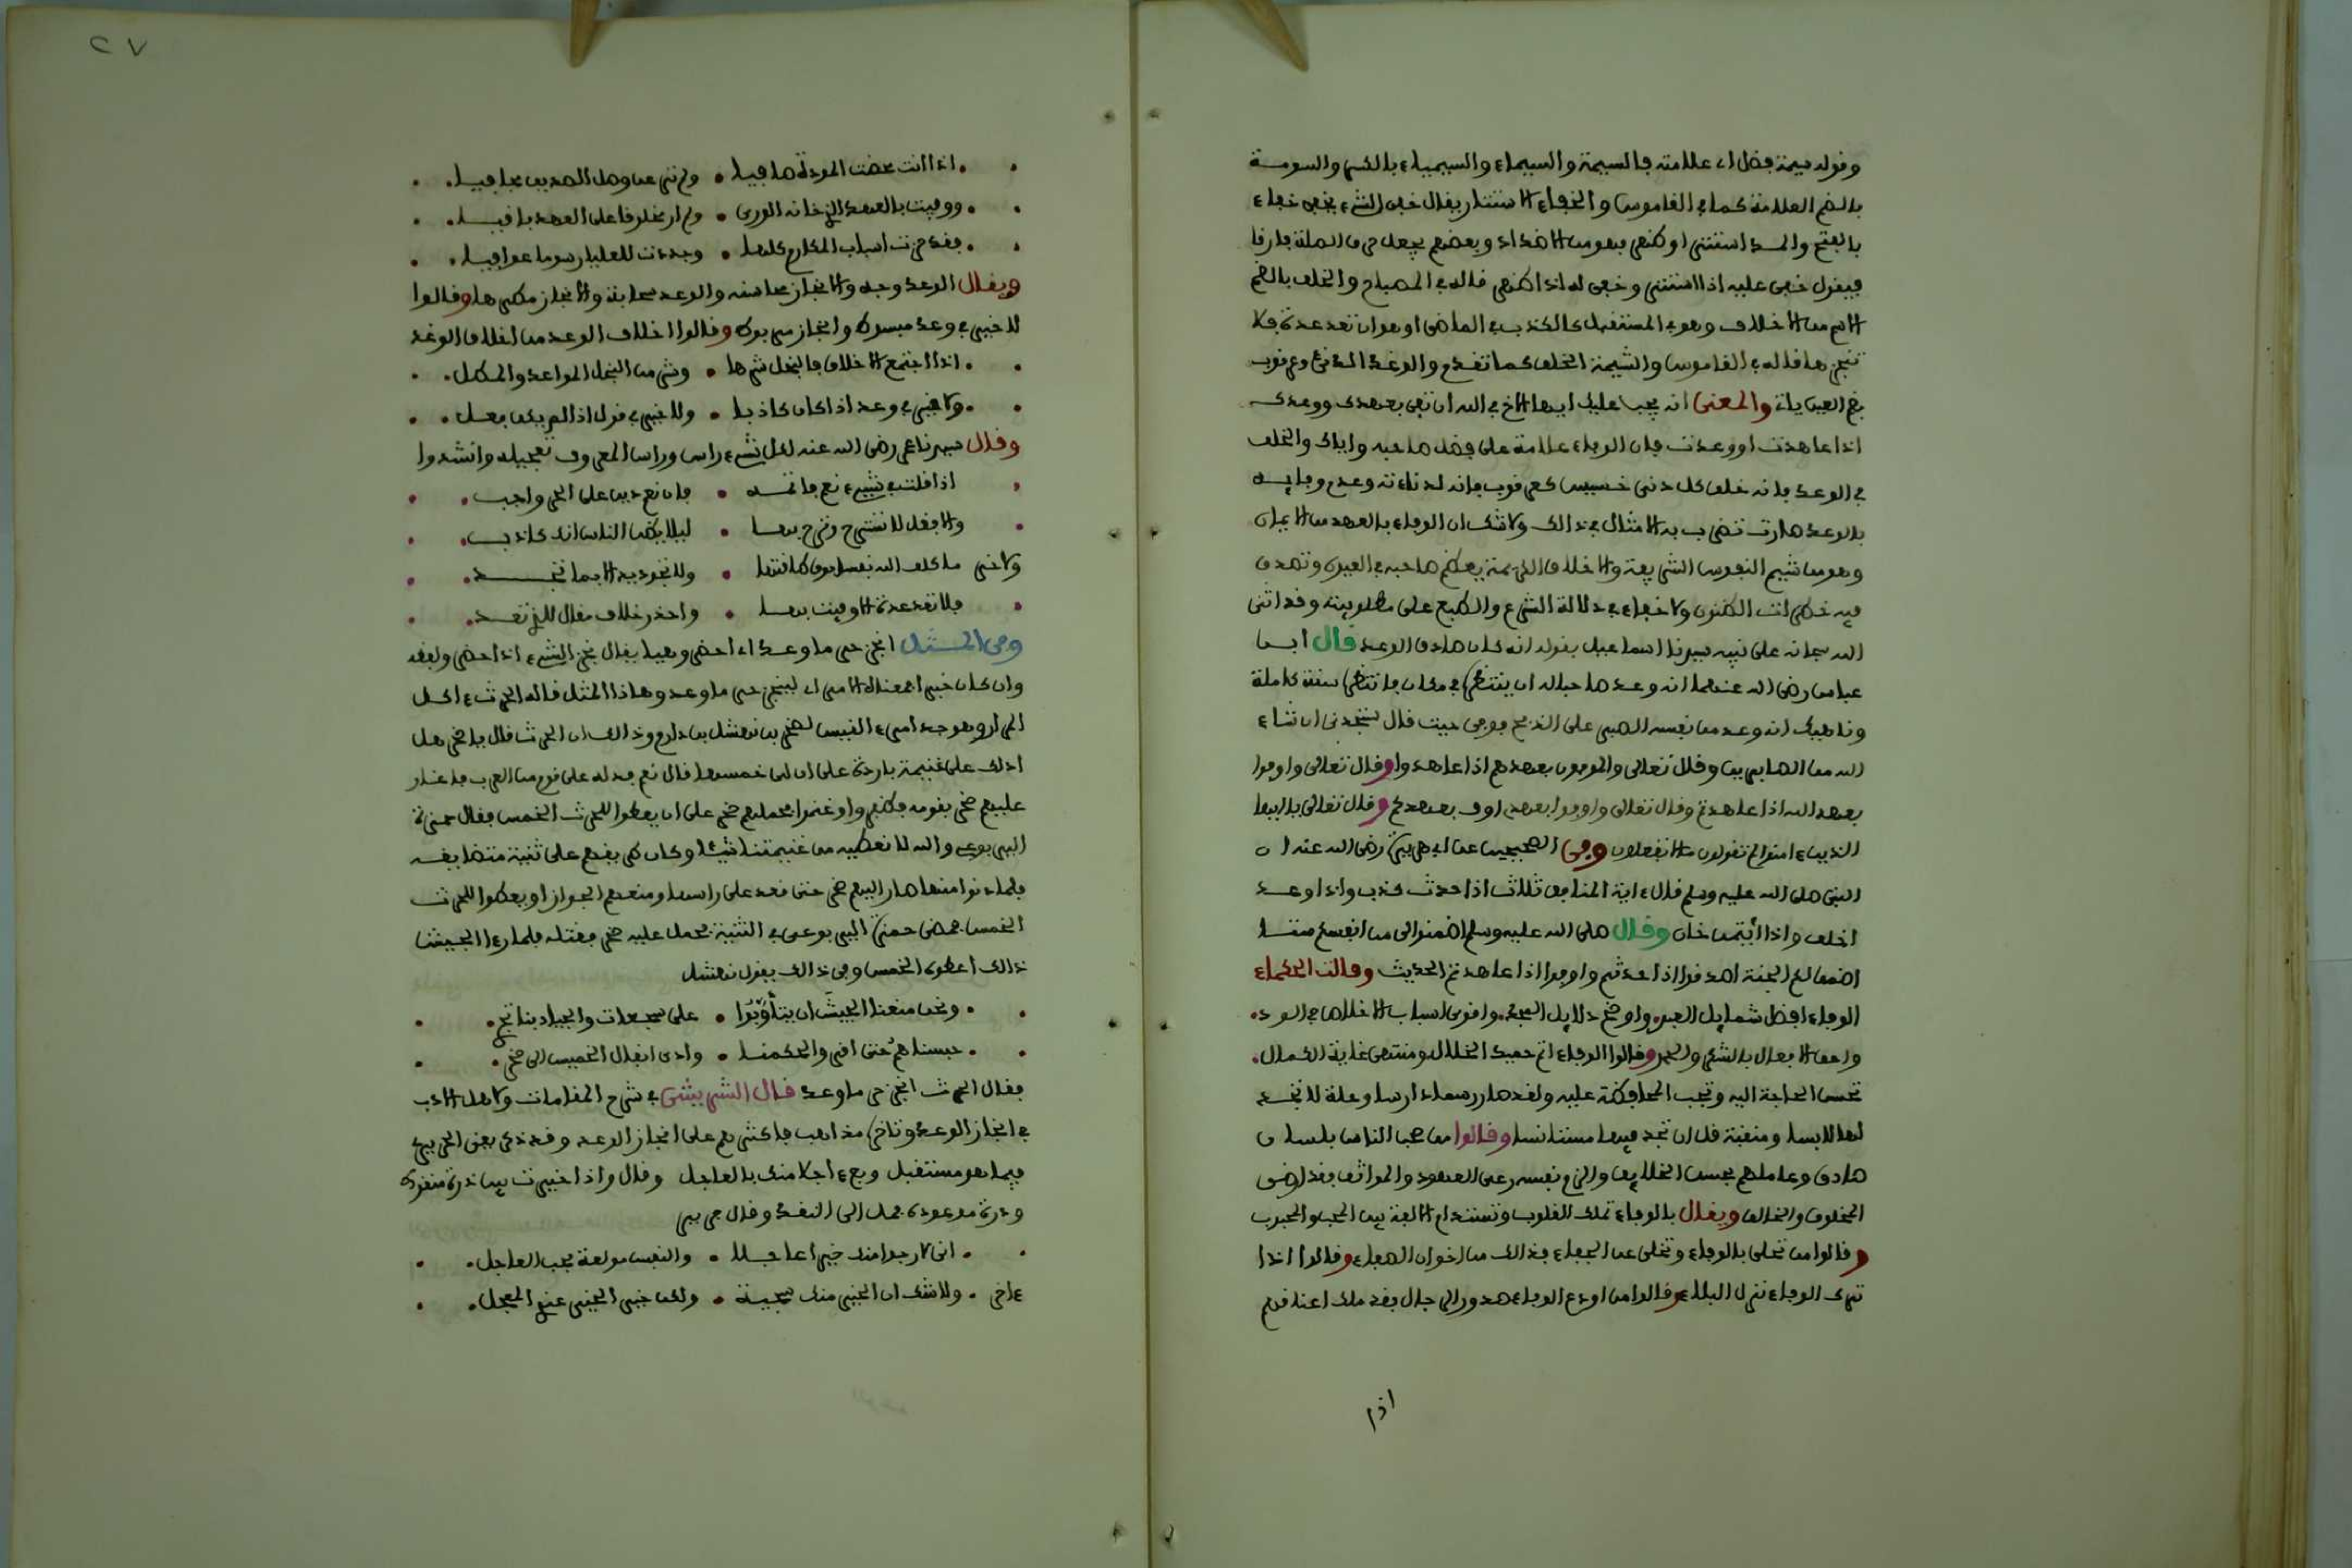 وقوله سيمة فضل اي علامته فالسيمة والسيماء والسيمياء بالكسر والسومة
بالضم العلامة كما في القاموس والخفاء الاستتار يقال خفي الشيء يخفى خفاء
بالفتح والمد استتر او ظهر فهو من الاضداد وبعضهم يجعل حرف الصلة فارقا
فيقول خفي عليه اذا استتر وخفي له اذا ظهر قاله في المصباح والخلف بالضم
الاسم من الاخلاف وهو في المستقبل كالكذب في الماضي او هو ان تعد عدة فلا
تنجزها قاله في القاموس والشيمة الخلق كما تقدم والوغد الدني وعرقوب
بضم العين ياتي والمعنى انه يجب عليك ايها الاخ في الله ان تفي بعهدك ووعدك
اذا عاهدت او وعدت فان الوفاء علامة على فضل صاحبه واياك والخلف
في الوعد فانه خلق كل دني خسيس كعرقوب فانه لدناءته وعدم وفايه
بالوعد صارت تضرب به الامثال في ذالك ولا شك ان الوفاء بالعهد من الايمان
وهو من شيم النفوس الشريفة والاخلاق الكريمة يعظم صاحبه في العيون وتصدق
فيه خطرات الظنون ولا خفاء في دلالة الشرع والطبع على مطلوبيته وقد اثنى
الله سبحانه على نبيه سيدنا اسماعيل بقوله انه كان صادق الوعد قال ابن
عباس رضي الله عنهما انه وعد صاحبا له ان ينتظره في مكان فانتظره سنة كاملة
وناهيك انه وعد من نفسه الصبر على الذبح فوفى حيث قال ستجدني ان شاء
الله من الصابرين وقال تعالى والموفون بعهدهم اذا عاهدوا وقال تعالى واوفوا
بعهد الله اذا عاهدتم وقال تعالى واوفوا بعهدي اوف بعهدكم وقال تعالى يا ايها
الذين ءامنوا لم تقولون ما لا تفعلون وفي الصحيحين عن ابي هريرة رضي الله عنه ان
النبي صلى الله عليه وسلم قال ءاية المنافق ثلاث اذا حدث كذب واذا وعد
اخلف واذا ائتمن خان وقال صلى الله عليه وسلم اضمنوا لي من انفسكم ستا
اضمن لكم الجنة اصدقوا اذا حدثتم واوفوا اذا عاهدتم الحديث وقالت الحكماء
الوفاء افضل شمايل العبد واوضح دلايل المجد واقوى اسباب الاخلاص في الود
واحق الافعال بالشكر والحمد وقالوا الوفاء اتم حميد الخلال ومنتهى غاية الكمال
تحسن الحاجة اليه وتجب المحافظة عليه ولقد صار رسما دارسا وحلة لا تجد
لها لابسا ومنقبة قل ان تجد فيها مستانسا وقالوا من صحب الناس بلسان
صادق وعاملهم بحسن الخلايق والزم نفسه رعي العهود والمواثق فقد ارضى
المخلوق والخالق ويقال بالوفاء تملك القلوب وتستدام الالفة بين المحب والمحبوب
وقالوا من تحلى بالوفاء وتخلى عن الجفاء فذالك من اخوان الصفاء وقالوا اذا
ترك الوفاء نزل البلاء وقالوا من اودع الوفاء صدور الرجال فقد ملك اعناقهم
اذا
٢٧
اذا انت محضت المودة صافيا • ولم تر عن وصل الصديق مجافيا
ووفيت بالعهد الذي خانه الورى • ولم ار مخلوقا على العهد باقيا
فقد حزت اسباب المكارم كلها • وجددت للعليا رسوما عوافيا
ويقال الوعد وجه والانجاز محاسنه والوعد سحابة والانجاز مطرها وقالوا
لا خير في وعد مبسوط وانجاز مربوط وقالوا اخلاف الوعد من اخلاق الوغد
اذا اجتمع الاخلاق فالبخل شرها • وشر من البخل المواعد والمطل
ولا خير في وعد اذا كان كاذبا • ولا خير في قول اذا لم يكن فعل
وقال سيدنا عمر رضي الله عنه لكل شيء راس وراس المعروف تعجيله وانشدوا
اذا قلت في شيء نعم فاتمه • فان نعم دين على الحر واجب
والا فقل لا تسترح وترح بها • ليلا يظن الناس انك كاذب
ولاخر ما كلف الله نفسا فوق طاقتها • ولا تجود يد الا بما تجد
فلا تعد عدة الا وفيت بها • واحذر خلاف مقال للذي تعد
وفي المثل انجز حر ما وعد اي احضر وهيا يقال نجز الشيء اذا حضر ولفظه
وان كان خبرا فمعناه الامر اي لينجز حر ما وعد وهاذا المثل قاله الحرث ءاكل
المرار وهو جد امرء القيس لصخر بن نهشل بن دارم وذالك ان الحرث قال يا صخر هل
ادلك على غنيمة باردة على ان لي خمسها قال نعم فدله على قوم من العرب فاغار
عليهم صخر بقومه فظفروا وغنموا فحملهم صخر على ان يعطوا للحرث الخمس فقال حمزة
اليربوعي والله لا نعطيه من غنيمتنا شيئا وكان طريقهم على ثنية متضايقة
فلما دنوا منها صار اليهم صخر حتى قعد على راسها ومنعهم الجواز او يعطوا للحرث
الخمس فمضى حمزة اليربوعي في الثنية فحمل عليه صخر فقتله فلما رءا الجيش
ذالك اعطوه الخمس وفي ذالك يقول نهشل
ونحن منعنا الجيش ان يتأوبوا • على شجعات والجياد بنا تجر
حبسناهم حتى اقروا بحكمنا • وادى انفال الخميس الى صخر
فقال الحرث انجز حر ما وعد قال الشريشي في شرح المقامات ولاهل الادب
في انجاز الوعد وتاخيره مذاهب فاكثرهم على انجاز الوعد وقد ذكر بعض الحريري
فيما هو مستقبل وبع ءاجلا منك بالعاجل وقال واذا خيرت بين ذرة منقودة
ودرة موعودة فمل الى النقد وقال جرير
اني لارجوا منك خيرا عاجلا • والنفس مولعة بحب العاجل
ءاخر • ولا شك ان الخير منك سجية • ولكن خير الخير عندي المعجل